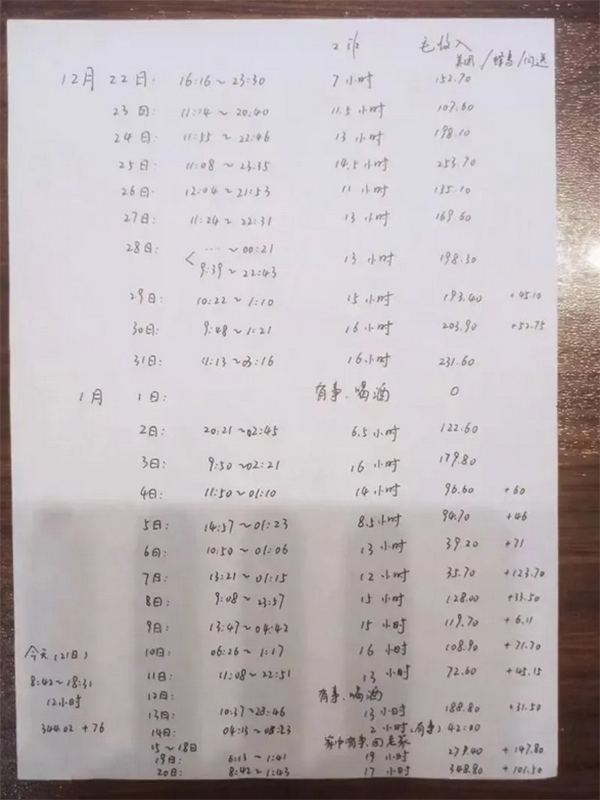 工作 毛收入
美团/蜂鸟/闪送
12月 22日: 16:16~23:30 7小时 152.70
23日: 11:14~20:40 11.5小时 107.60
24日: 11:55~22:46 13小时 198.10
25日: 11:08~23:35 14.5小时 253.70
26日: 12:04~21:53 11小时 135.10
27日: 11:24~22:31 13小时 169.60
28日: < ···~00:21
9:39~22:43 13小时 198.30
29日: 10:22~1:10 15小时 193.40 +45.10
30日: 9:48~1:21 16小时 203.90 +52.75
31日: 11:13~03:16 16小时 231.60
1月 1日: 有事、喝酒 0
2日: 20:21~02:45 6.5小时 122.60
3日: 9:50~02:21 16小时 179.80
4日: 11:50~01:10 14小时 96.60 +60
5日: 14:57~01:23 8.5小时 94.70 +46
6日: 10:50~01:06 13小时 39.20 +71
7日: 13:21~01:15 12小时 35.70 +123.70
8日: 9:08~23:57 15小时 128.00 +33.50
9日: 13:47~04:42 15小时 119.70 +6.11
10日: 06:26~1:17 16小时 108.90 +71.70
11日: 11:08~22:51 13小时 72.60 +45.15
12日: 有事、喝酒
13日: 10:37~23:46 13小时 188.80 +31.50
14日: 04:13~08:23 2小时(有事) 42.00
15~18日 家中有事、回老家
19日: 6:13~1:41 19小时 279.40 +147.80
20日: 8:42~1:43 17小时 348.80 +101.50
今天(21日)
8:42~18:31
12小时
344.02+76